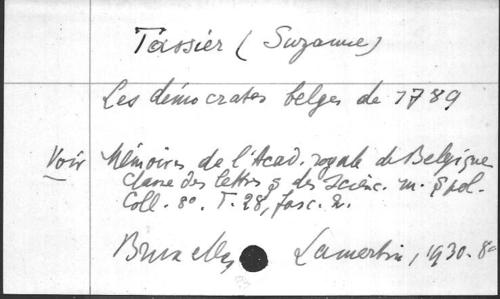 Tassier (Suzanne)
Les démocrates belges de 1789
Voir Mémoires de l'Acad. royale de Belgique
Classe des lettres & des scienc. m. & pol.
Coll. 8°. T. 28, fasc. 2.
Bruxelles Lamertin, 1930. 8°